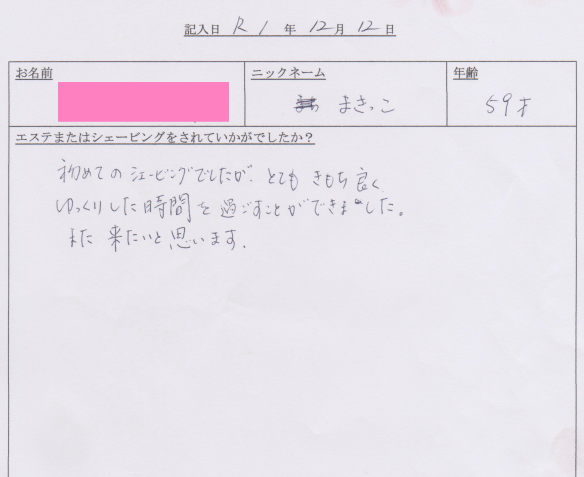 記入日 R1年12月12日
お名前 ニックネーム 年齢
まきっこ 59才
エステまたはシェービングをされていかがでしたか？
初めてのシェービングでしたが、とてもきもち良く
ゆっくりした時間を過ごすことができました。
また来たいと思います。